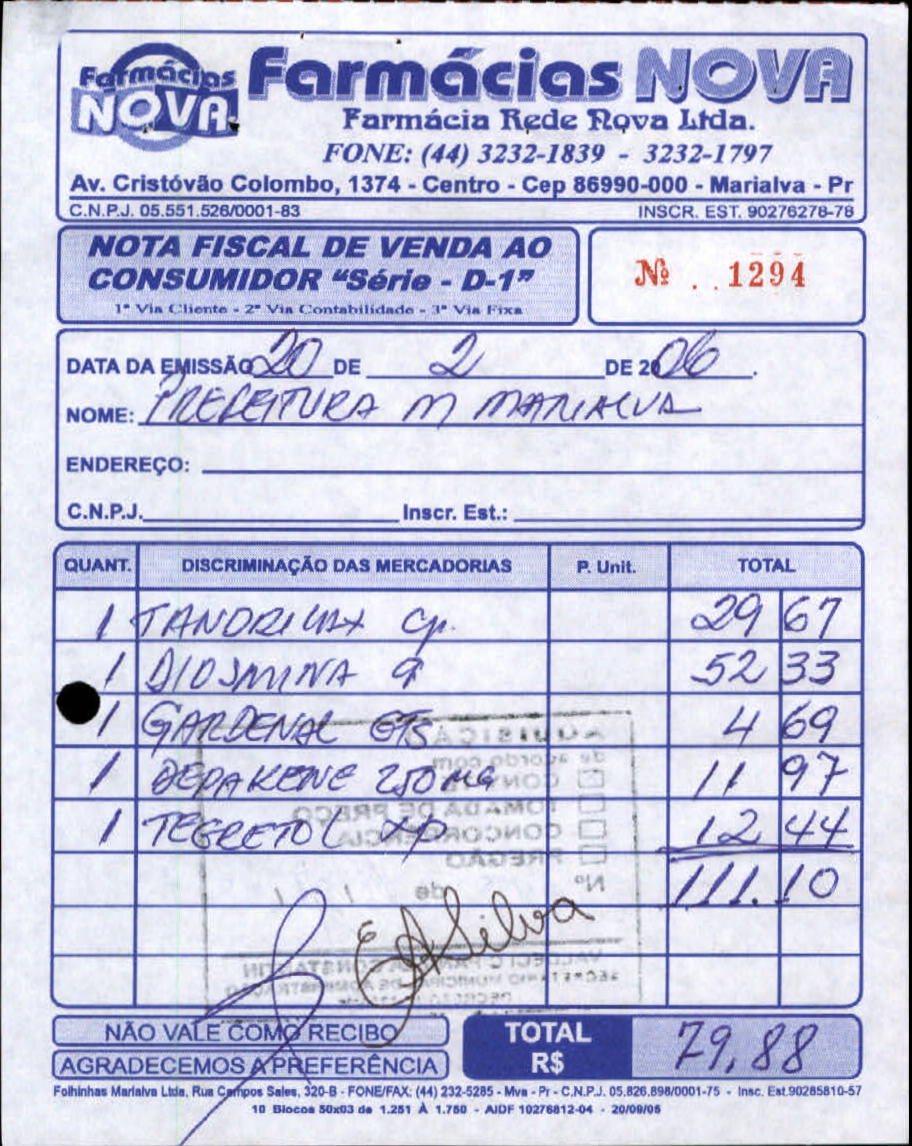 Farmácias NOVA
Farmácias NOVA
Farmácia Rede Nova Ltda.
FONE: (44) 3232-1839 - 3232-1797
Av. Cristóvão Colombo, 1374 - Centro - Cep 86990-000 - Marialva - Pr
C.N.P.J. 05.551.526/0001-83 INSCR. EST. 90276278-78
NOTA FISCAL DE VENDA AO
CONSUMIDOR "Série - D-1"
1ª Via Cliente - 2ª Via Contabilidade - 3ª Via Fixa
Nº 1294
DATA DA EMISSÃO 20 DE 2 DE 2006
NOME: PREFEITURA M MARIALVA
ENDEREÇO:
C.N.P.J. Inscr. Est.:
QUANT. DISCRIMINAÇÃO DAS MERCADORIAS P. Unit. TOTAL
1 TANDRILAX cp. 29 67
1 DIOSMINA 52 33
1 GARDENAL GTS 4 69
1 DEPAKENE 250MG 11 97
1 TEGRETOL 12 44
111.10
AQUISIÇÃO
de acordo com
CONVITE
TOMADA DE PREÇO
CONCORRÊNCIA
PREGÃO
Nº de / /
Silva
SECRETARIO MUNICIPAL DE ADMINISTRAÇÃO
NÃO VALE COMO RECIBO
AGRADECEMOS A PREFERÊNCIA
TOTAL
R$ 79,88
Folhinhas Marialva Ltda, Rua Campos Sales, 320-B - FONE/FAX: (44) 232-5285 - Mva - Pr - C.N.P.J. 05.826.898/0001-75 - Insc. Est.90285810-57
10 Blocos 50x03 de 1.251 À 1.750 - AIDF 10276812-04 - 20/09/05